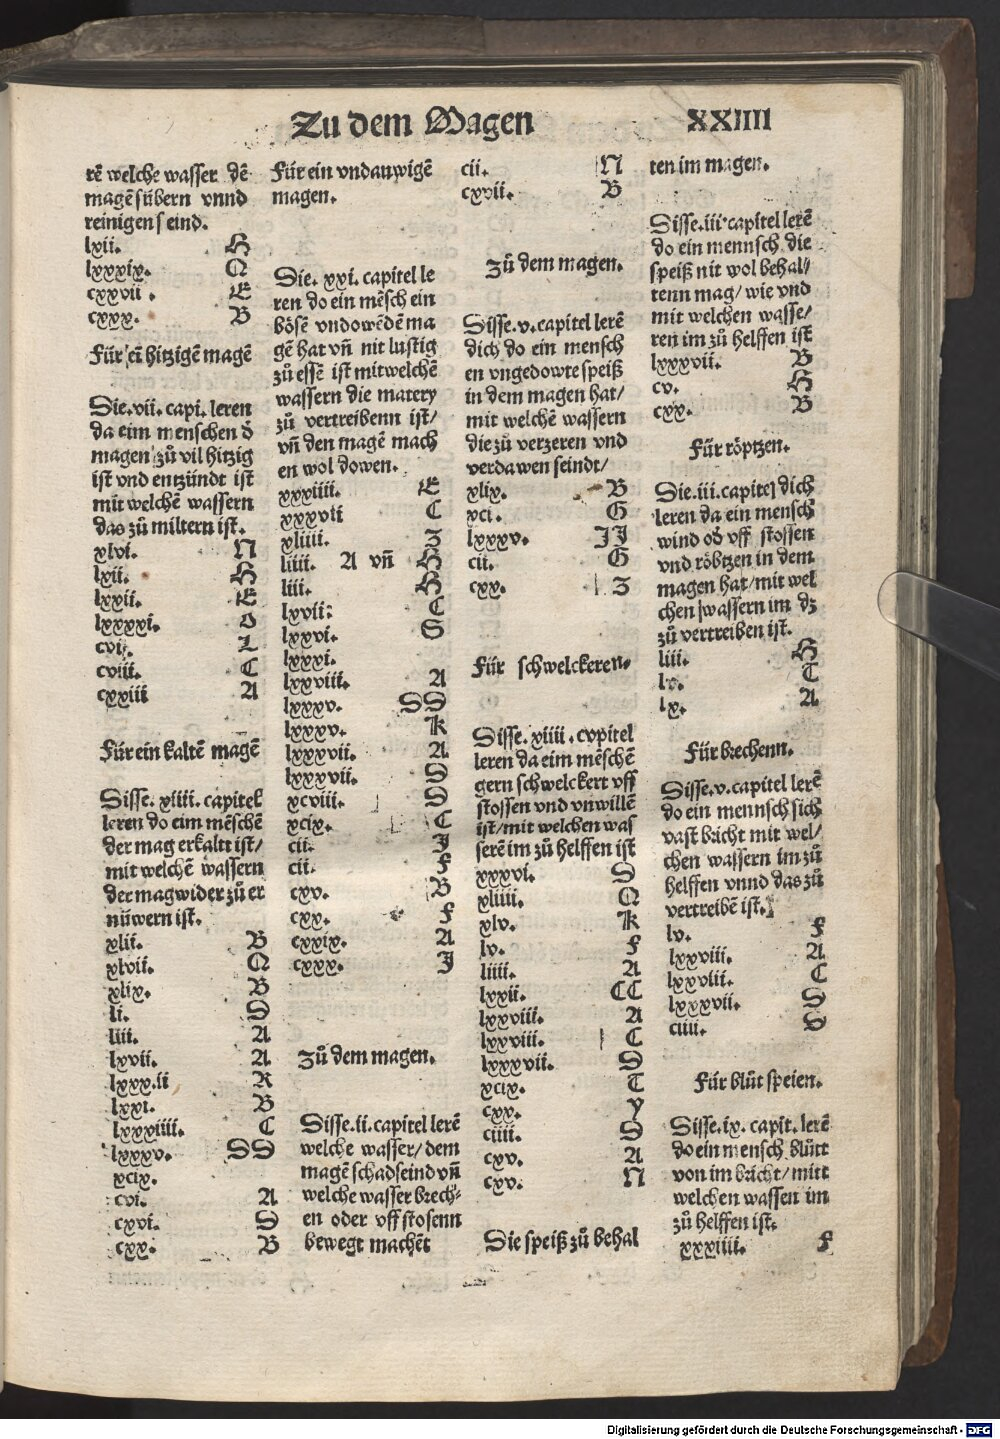 Zu dem Magen
XXIIII
rē welche wasser dē
magē sübern vnnd
reinigen seind.
lxii. H
lxxxix. Q
cxxvii. E
cxxx. B
Für eī hitzigē magē
Die .vii. capi. leren
da eim menschen d̄
magen zů vil hitzig
ist vnd entzündt ist
mit welchē wassern
das zů miltern ist.
xlvi. N
lxii. H
lxxii. E
lxxxxi. O
cvi. L
cviii. C
cxxiii A
Für ein kaltē magē
Disse .xiiii. capitel
leren do eim mēschē
der mag erkaltt ist/
mit welchē wassern
der mag wider zů er
nüwern ist.
xlii. B
xlvii. Q
xlix. B
li. D
liii. A
lxvii. A
lxxx.ii R
lxxi. B
lxxxiiii. C
lxxxv. DD
xcix.
cvi. A
cxvi. D
cxx. B
Für ein vndauwigē
magen.
Die .xxi. capitel le
ren do ein mēsch ein
bösē vndowēdē ma
gē hat vn̄ nit lustig
zů essē ist mit welchē
wassern die matery
zů vertreibenn ist/
vn̄ den magē mach
en wol dowen.
xxxiiii. E
xxxvii C
xliiii. Z
liiii. A vn̄ H
liii. H
lxvii: C
lxxvi. G
lxxxi.
lxxviii. A
lxxxv. DD
lxxxv. K
lxxxvii. A
lxxxvii. D
xcviii. D
xcix. C
cii. J
cii. F
cxv. B
cxx. F
cxxix. A
cxxx. J
Zů dem magen.
Disse .ii. capitel lerē
welche wasser/ dem
magē schad seind vn̄
welche wasser brech⸗
en oder vff stosenn
bewegt machēt
cii. N
cxvii. B
Zů dem magen.
Disse .v. capitel lerē
dich do ein mensch
en vngedowte speiß
in dem magen hat/
mit welchē wassern
die zů verzeren vnd
verdawen seindt/
xlix. B
xci. G
lxxxv. JJ
cii. G
cxx. Z
Für schwelckeren.
Disse .xiiii. cvpitel
leren da eim mēschē
gern schwelckert vff
stossen vnd vnwillē
ist/mit welchen was
serē im zů helffen ist
xxxvi. D
xliiii. Q
xlv. K
lv. F
liiii. A
lxxii. CC
lxxviii. A
lxxviii. C
lxxxvii. D
xcix. C
cxx. Y
ciiii. D
cxv. A
cxv. N
Die speiß zů behal
ten im magen.
Disse .iii. capitel lerē
do ein mennsch die
speiß nit wol behal/
tenn mag/ wie vnd
mit welchen wasse/
ren im zů helffen ist
lxxxvii. B
cv. H
cxx. B
Für röptzen.
Die .iii. capitel dich
leren da ein mensch
wind od̄ vff stossen
vnd röbtzen in dem
magen hat/mit wel
chen wassern im dz
zů vertreiben ist.
liii. H
lv. C
lx. A
Für brechenn.
Disse .v. capitel lerē
do ein mennsch sich
vast bricht mit wel/
chen wassern im zů
helffen vnnd das zů
vertreibē ist.
lv. F
lxxviii. A
lxxvlii. C
lxxxvii. D
ciiii. D
Für blůt speien.
Disse .ix. capit. lerē
do ein mensch blůtt
von im bricht/ mitt
welchen wassen im
zů helffen ist.
xxxiiii. F
Digitalisierung gefördert durch die Deutsche Forschungsgemeinschaft - DFG